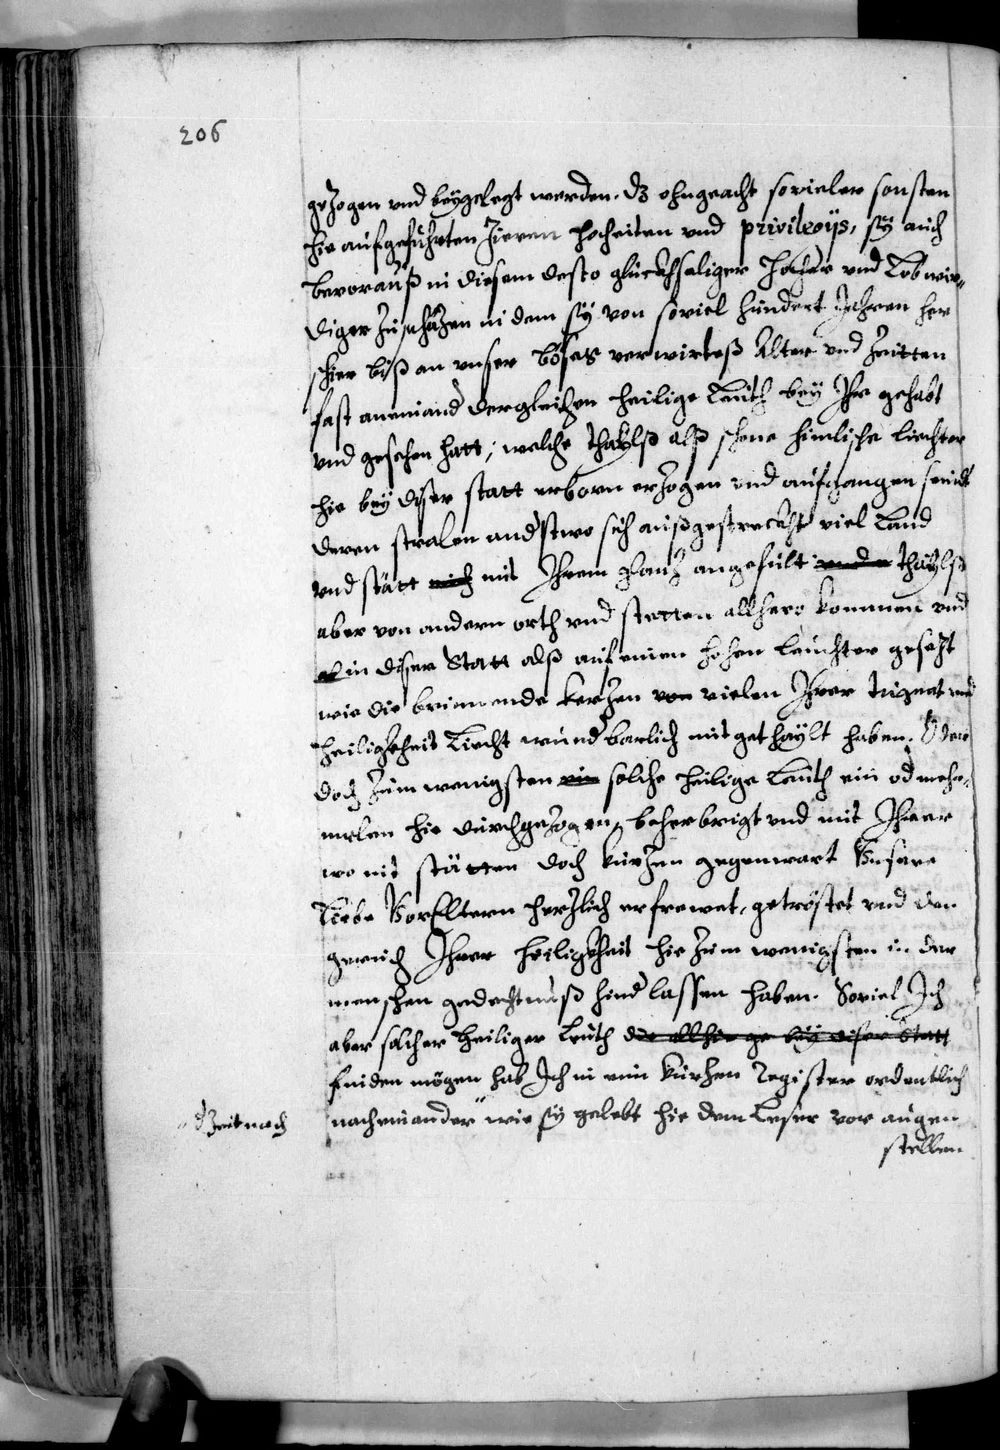 206
gezogen und beygelegt werden. dz ohngeacht sovieler sonsten
hie aufgefuhrten Zieren hocheiten und privileoÿs, sÿ auch
bevorauß in diesem desto glückhseliger höher und Lobwir„
diger zuschäzen in dem sÿ von soviel hundert Jahren her
schier biß an unser böses verwirteß Alter und Zeitten
fast aneinand dergleichen heilige Leuth beÿ Ihr gehabt
und gesehen hatt, welche thaÿlß alß schöne himlische liechter
hie beÿ diser statt erboren erzogen und aufgangen seindt
deren stralen anderstwo sich außgestreckht viel Land
und stätt mit Ihrem glantz angefült thaÿlß
aber von andern orth und stetten allhero kommen und
in diser Statt alß auf einen hohen leuchter gesetzt
wie die brinnende kerzen von vielen Ihrer tugent und
heiligkheit Liecht wunderbarlich mitgethaÿlt haben. Oder
doch zum wenigsten ein solche heilige Leuth ein od mehr„
malen hie durchgezogen, beherbrigt und mit Ihrer
wo nit stätten doch kurzen gegenwart Unsere
Liebe VorEltern herzlich erfrewet, getröstet und den
geruch Ihrer heiligkheit hie zum wenigsten in der
menschen gedechtnuß hinderlassen haben. Soviel Ich
aber solcher heiliger Leuth die allhie ge beÿ diser Statt
finden mögen hab Ich in ein kurzen Register ordentlich
nacheinander „ wie sÿ gelebt hie dem Leser vor augen
„ d Zeit nach
stellen